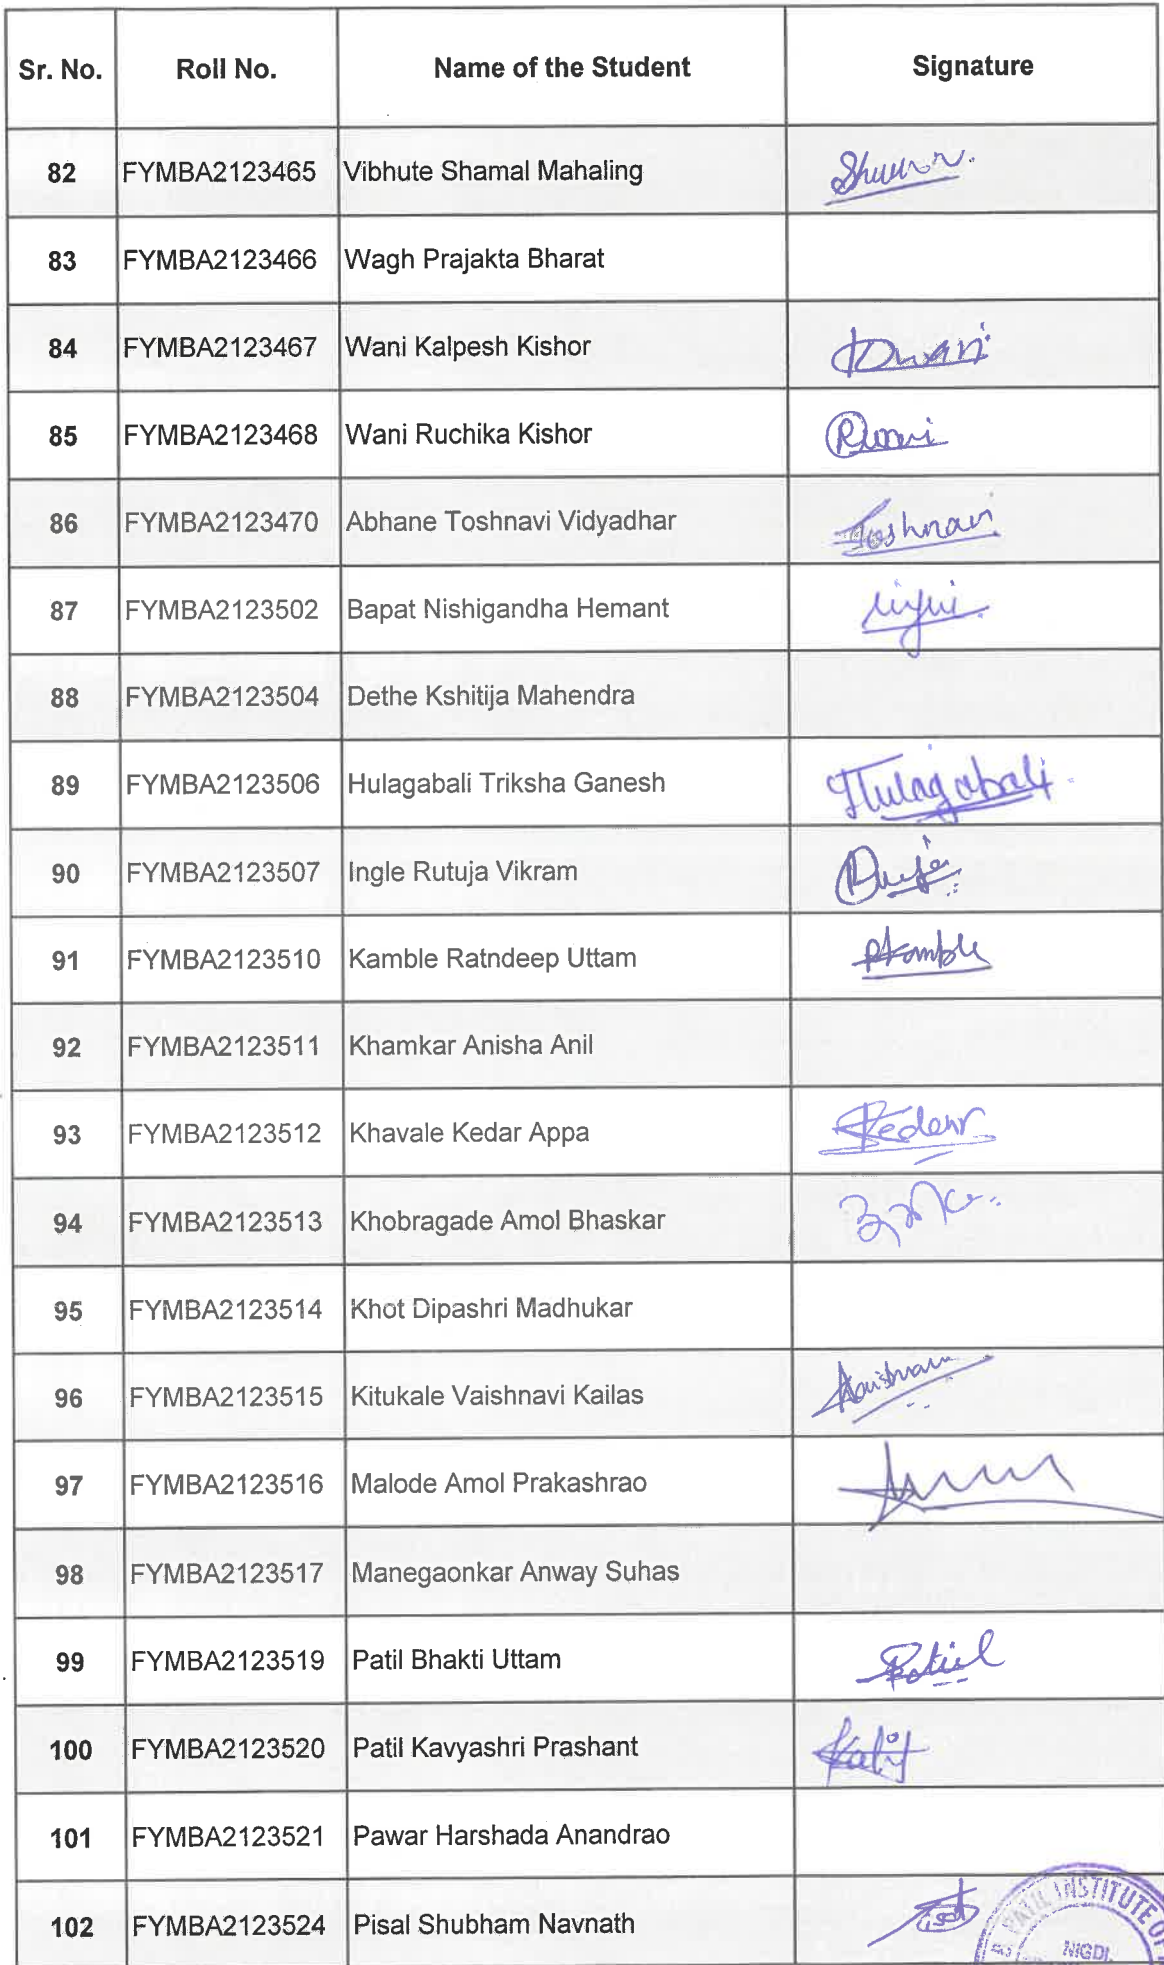 Sr. No. Roll No. Name of the Student Signature
82 FYMBA2123465 Vibhute Shamal Mahaling
83 FYMBA2123466 Wagh Prajakta Bharat
84 FYMBA2123467 Wani Kalpesh Kishor
85 FYMBA2123468 Wani Ruchika Kishor
86 FYMBA2123470 Abhane Toshnavi Vidyadhar Toshnavi
87 FYMBA2123502 Bapat Nishigandha Hemant
88 FYMBA2123504 Dethe Kshitija Mahendra
89 FYMBA2123506 Hulagabali Triksha Ganesh Hulagabali
90 FYMBA2123507 Ingle Rutuja Vikram
91 FYMBA2123510 Kamble Ratndeep Uttam
92 FYMBA2123511 Khamkar Anisha Anil
93 FYMBA2123512 Khavale Kedar Appa
94 FYMBA2123513 Khobragade Amol Bhaskar
95 FYMBA2123514 Khot Dipashri Madhukar
96 FYMBA2123515 Kitukale Vaishnavi Kailas
97 FYMBA2123516 Malode Amol Prakashrao
98 FYMBA2123517 Manegaonkar Anway Suhas
99 FYMBA2123519 Patil Bhakti Uttam
100 FYMBA2123520 Patil Kavyashri Prashant
101 FYMBA2123521 Pawar Harshada Anandrao
102 FYMBA2123524 Pisal Shubham Navnath
PATIL INSTITUTE OF
NIGDI,